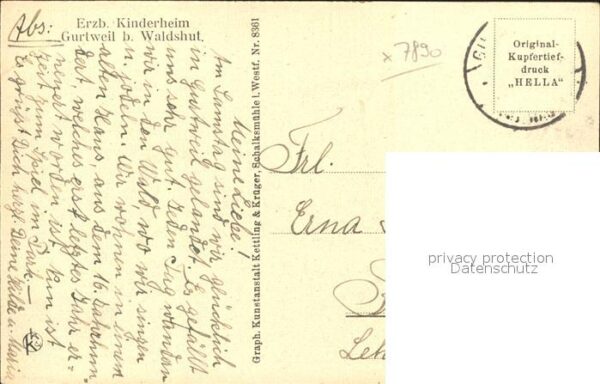 Abs:
Erzb. Kinderheim
Gurtweil b. Waldshut.
Meine Liebe!
Am Samstag sind wir glücklich
in Gurtweil gelandet. Es gefällt
uns sehr gut. Jeden Tag wandern
wir in den Wald, wo wir singen
u. jodeln. Wir wohnen in einem
alten Haus, aus dem 16. Jahrhun
dert, welches erst letztes Jahr er-
neuert worden ist. Nun ist
Zeit zum Spiel im Park.
Es grüsst Dich herzl. Deine Hilde u. Maria
Graph. Kunstanstalt Kettling & Krüger, Schalksmühle i. Westf. Nr. 8361
x 7890
Original-
Kupfertief-
druck
„HELLA"
Frl.
Erna
privacy protection
Datenschutz
K